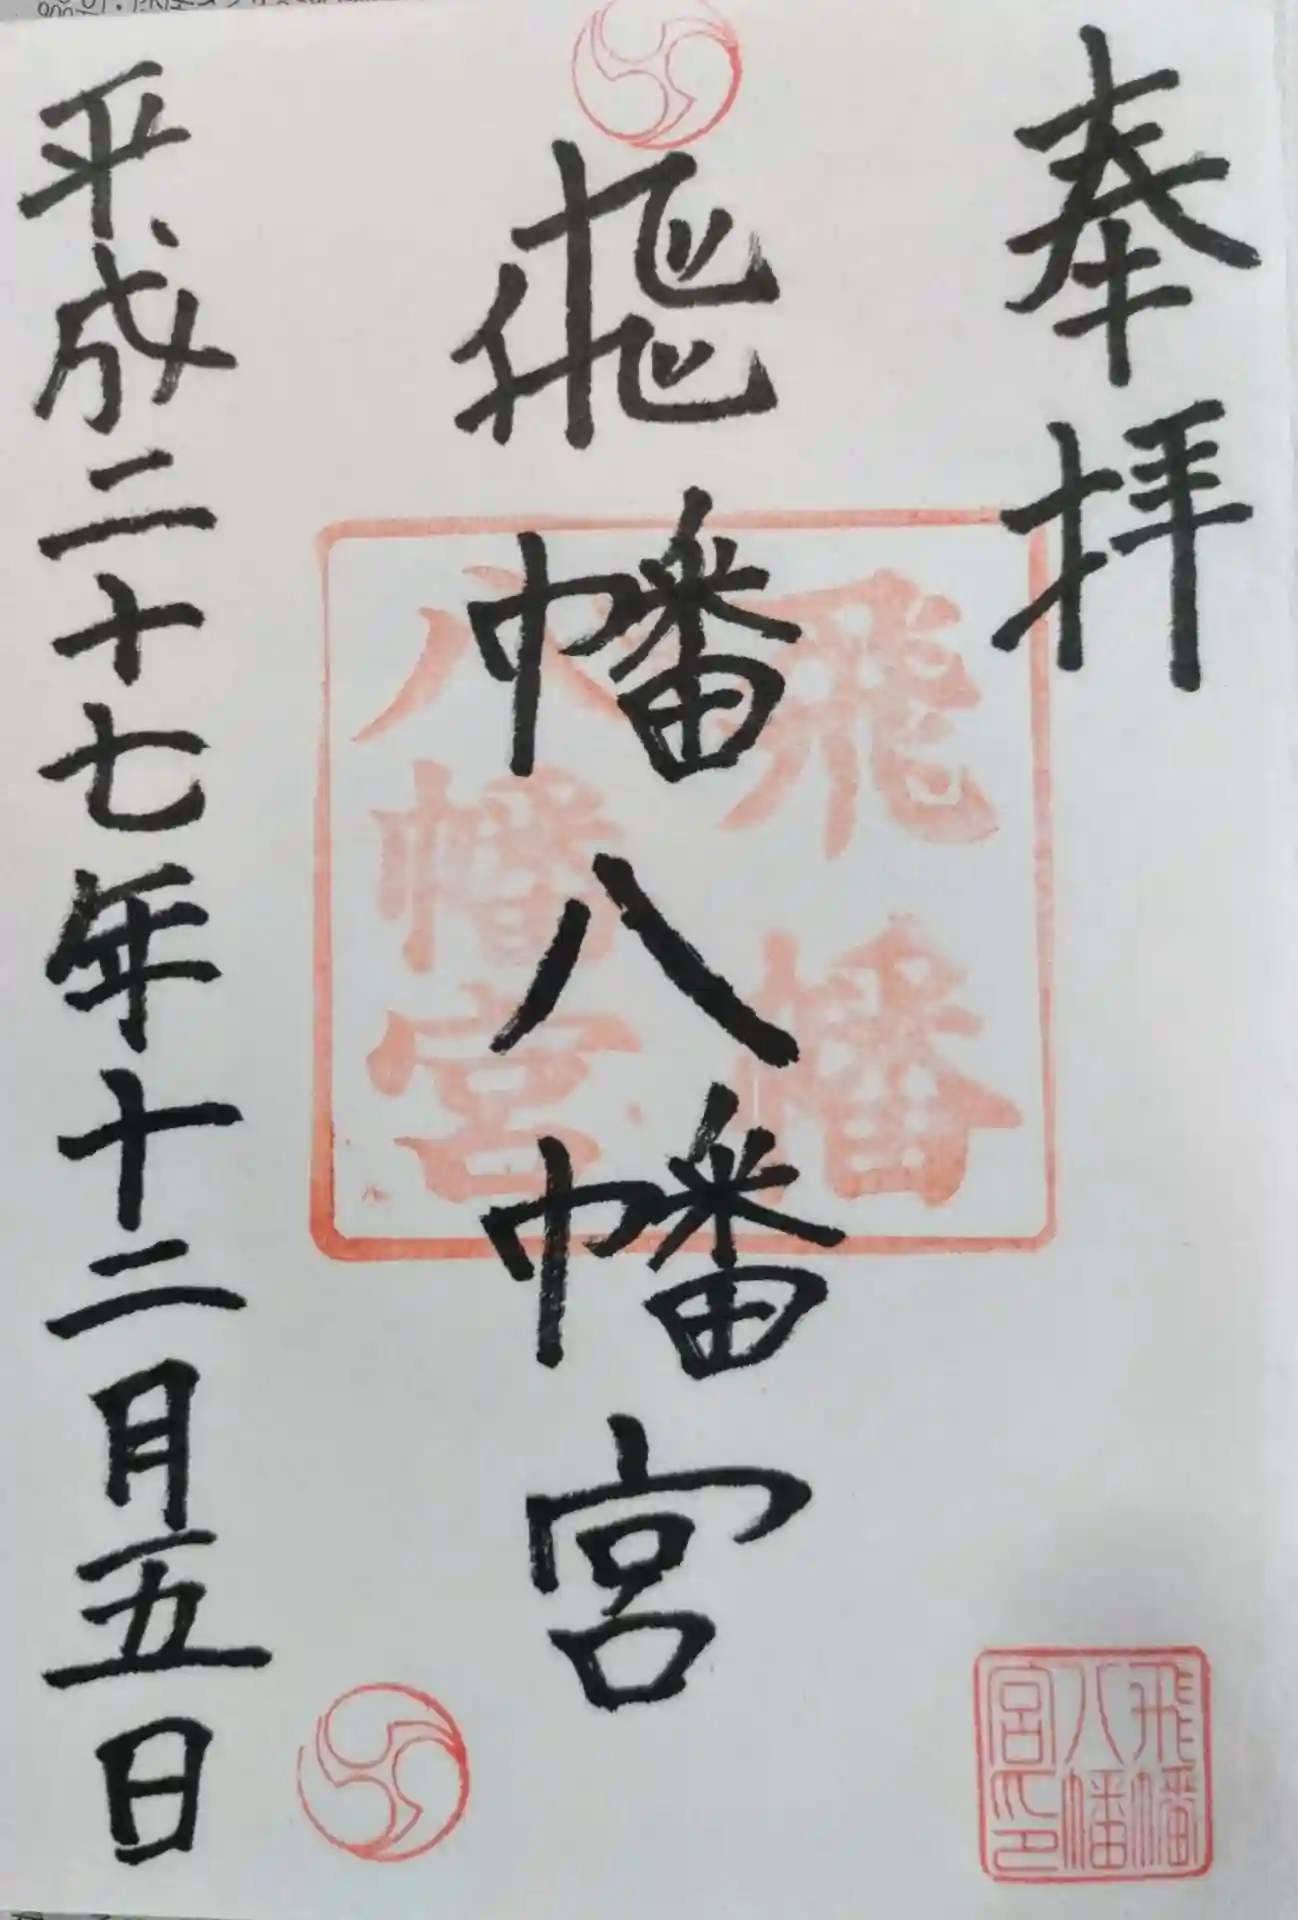 奉拝
飛幡八幡宮
平成二十七年十二月五日
飛幡
八幡宮
飛幡
八幡
宮印